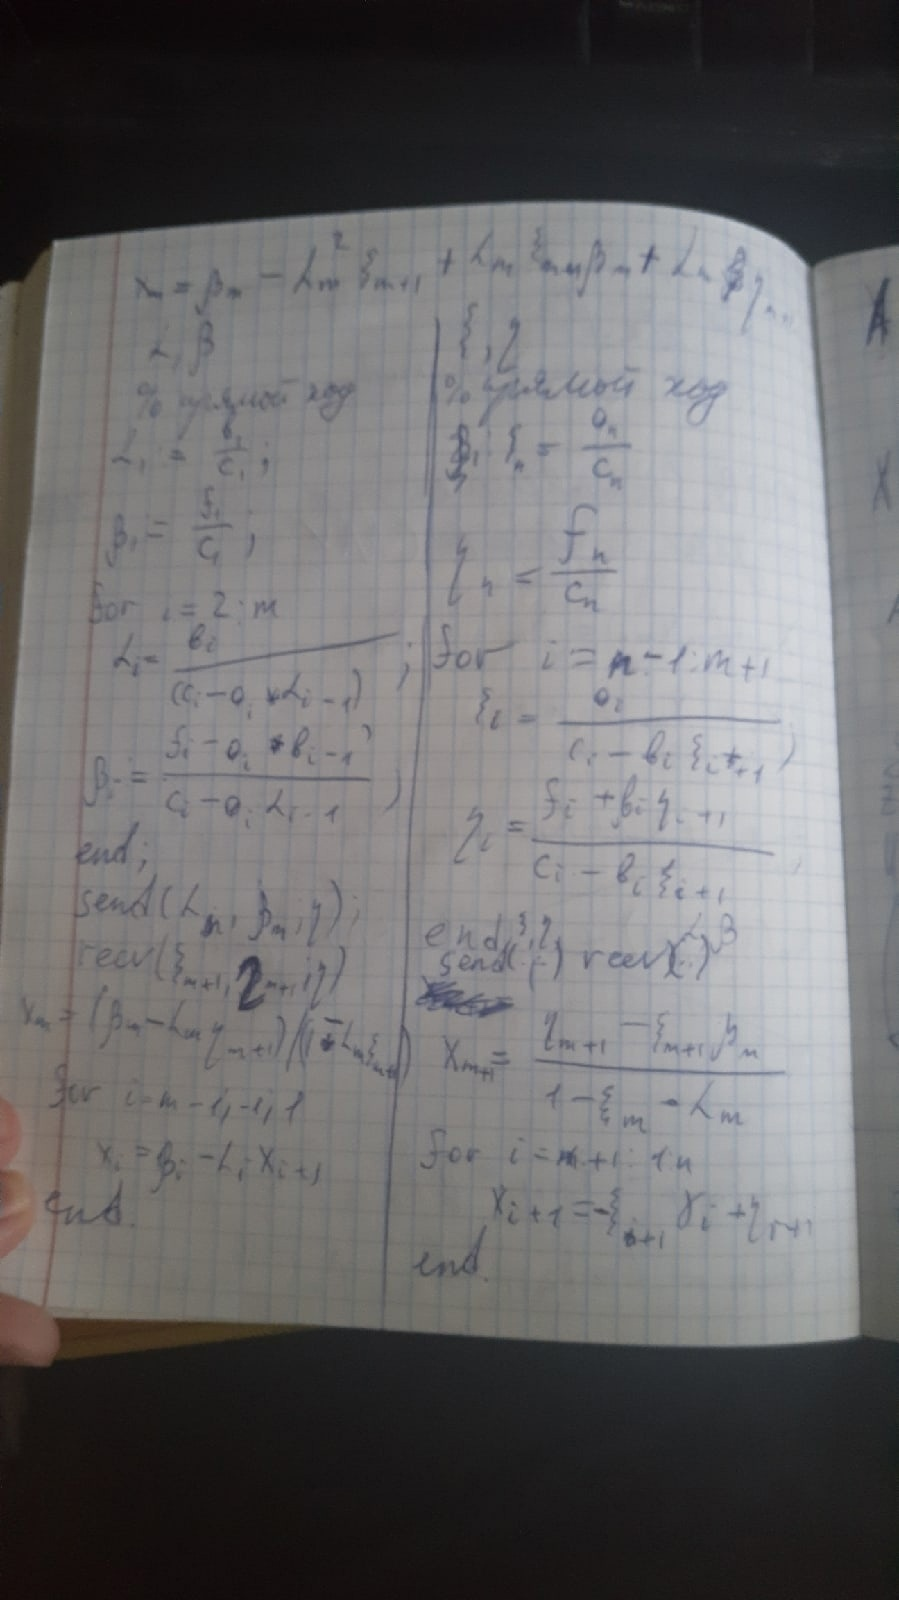 x_m = β_m − α_m² ξ_{m+1} + α_m ξ_{m+1} β_m + α_m η_{m+1}
α, β
% прямой ход
α_1 = b_1 / c_1 ;
β_1 = f_1 / c_1 ;
for i = 2 : m
α_i = b_i / (c_i − a_i * α_{i−1}) ;
β_i = (f_i − a_i * b_{i−1}) / (c_i − a_i α_{i−1}) ;
end;
send(α_m, β_m, η);
recv(ξ_{m+1}, η_{m+1}, η)
x_m = (β_m − α_m η_{m+1}) / (1 − α_m ξ_{m+1})
for i = m − 1, −1, 1
x_i = β_i − α_i x_{i+1}
end.
ξ, η
% прямой ход
ξ_n = a_n / c_n
η_n = f_n / c_n
for i = n − 1 : m + 1
ξ_i = a_i / (c_i − b_i ξ_{i+1})
η_i = (f_i + b_i η_{i+1}) / (c_i − b_i ξ_{i+1}) ;
end, ξ, η, α β
send(..) recv(..)
x_{m+1} = (η_{m+1} − ξ_{m+1} β_m) / (1 − ξ_m · α_m)
for i = m + 1 : 1 n
x_{i+1} = −ξ_{i+1} x_i + η_{i+1}
end.
A
X